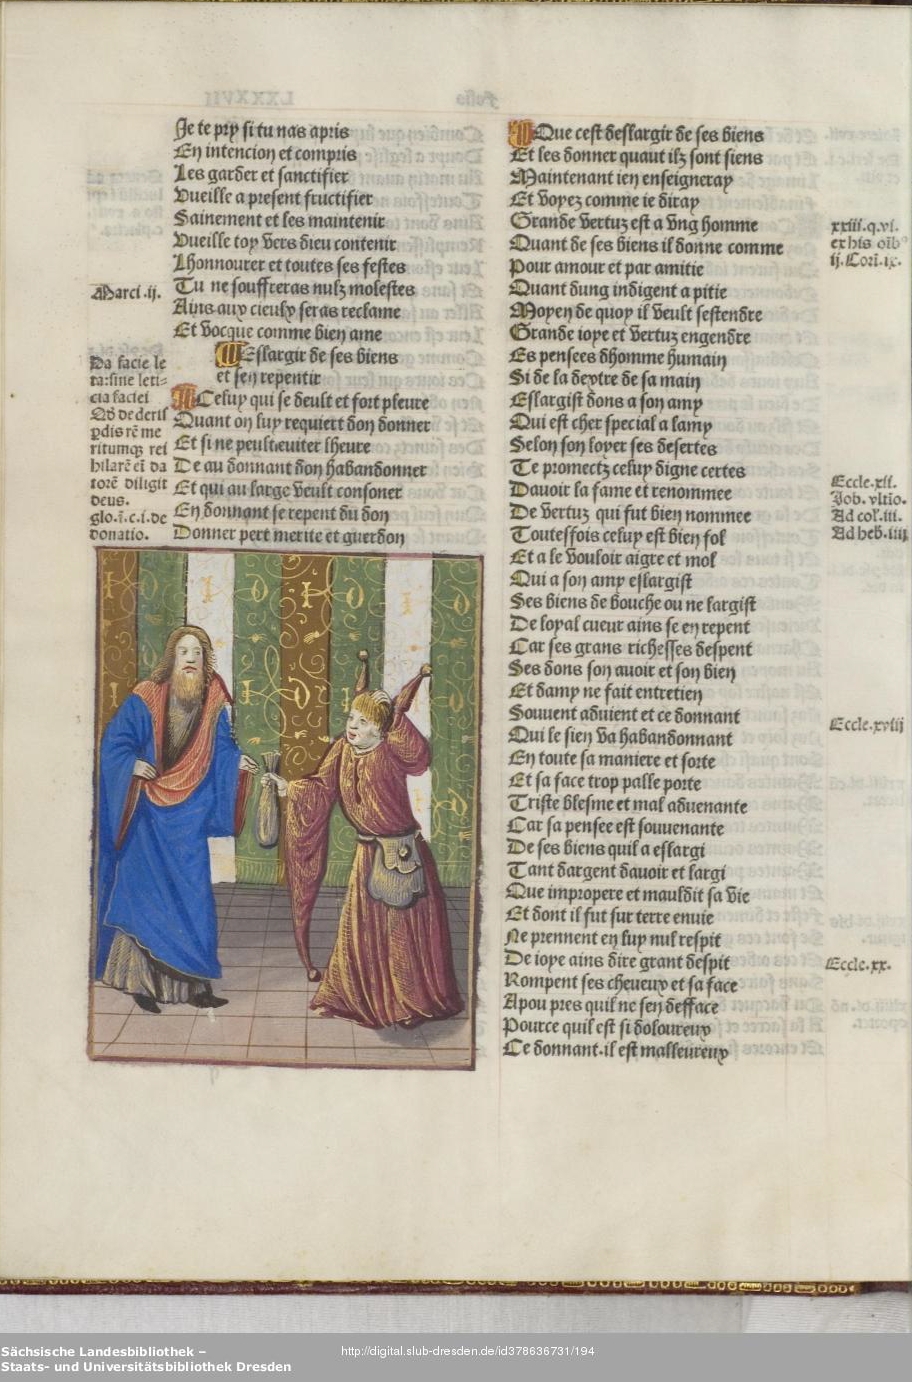 Je te pry si tu nas apris
En intencion et compris
Les garder et sanctifier
Vueille a present fructifier
Sainement et les maintenir
Vueille toy vers dieu contenir
Lhonnourer et toutes ses festes
Tu ne souffreras nulz molestes
Ains aux cieulx seras reclame
Et vocque comme bien ame
Marci .ij.
Deslargir de ses biens
et sen repentir
Celuy qui se deult et fort pleure
Quant on luy requiert don donner
Et si ne peult euiter lheure
De au donnant don habandonner
Et qui au large veult consoner
En donnant se repent du don
Donner pert merite et guerdon
Da facie le
ta:sine leti-
cia faciei
Qd de deris
pdis rē me
ritumqȝ rei
hilarē eī da
torē diligit
deus.
glo.ī.c.i.de
donatio.
Que cest deslargir de ses biens
Et les donner quant ilz sont siens
Maintenant ien enseigneray
Et voyez comme ie diray
Grande vertuz est a vng homme
Quant de ses biens il donne comme
Pour amour et par amitie
Quant dung indigent a pitie
Moyen de quoy il veult sestendre
Grande ioye et vertuz engendre
Es pensees dhomme humain
Si de la dextre de sa main
Eslargist dons a son amy
Qui est cher special a lamy
Selon son loyer ses desertes
Te promectz celuy digne certes
Dauoir la fame et renommee
De vertuz qui fut bien nommee
Toutesfois celuy est bien fol
Et a le vouloir aigre et mol
Qui a son amy eslargist
Ses biens de bouche ou ne largist
De loyal cueur ains se en repent
Car ses grans richesses despent
Ses dons son auoir et son bien
Et damy ne fait entretien
Souuent aduient et ce donnant
Qui le sien va habandonnant
En toute sa maniere et sorte
Et sa face trop palle porte
Triste blesme et mal aduenante
Car sa pensee est souuenante
De ses biens quil a eslargi
Tant dargent dauoir et largi
Que impropere et mauldit sa vie
Et dont il fut sur terre enuie
Ne prennent en luy nul respit
De ioye ains dire grant despit
Rompent ses cheueux et sa face
Apou pres quil ne sen defface
Pource quil est si doloureux
Ce donnant.il est malleureux
xxiii.q.vi.
ex his oīb
ij.Corī.ix.
Eccle.xii.
Job. vltio.
Ad col.iii.
Ad heb.iiij
Eccle.xviij
Eccle.xx.
Sächsische Landesbibliothek –
Staats- und Universitätsbibliothek Dresden
http://digital.slub-dresden.de/id378636731/194